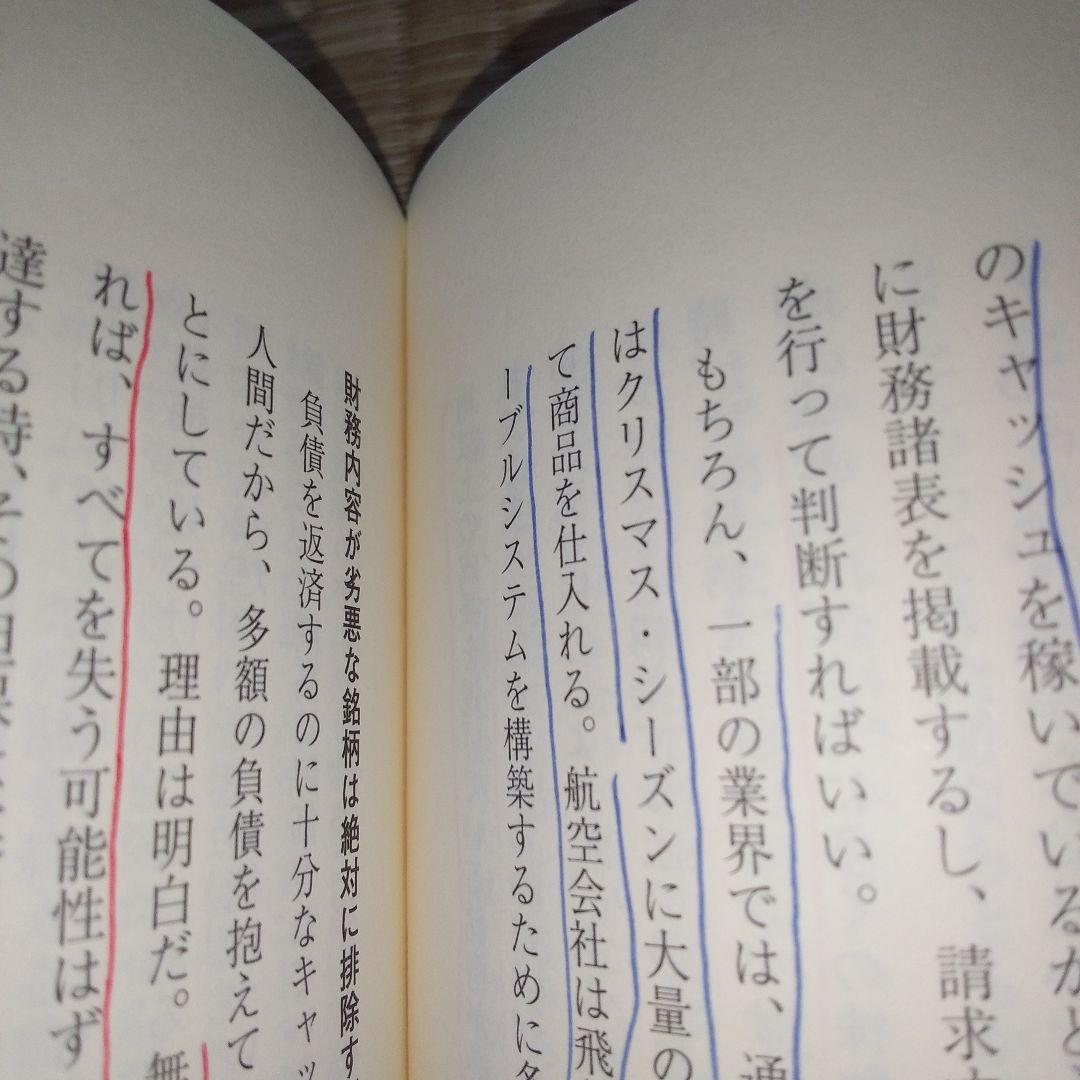 のキャッシュを稼いでいるかど
に財務諸表を掲載するし、請求
を行って判断すればいい。
もちろん、一部の業界では、通
はクリスマス・シーズンに大量の
て商品を仕入れる。航空会社は飛
ーブルシステムを構築するために多
財務内容が劣悪な銘柄は絶対に排除す
負債を返済するのに十分なキャッ
人間だから、多額の負債を抱えて
とにしている。理由は明白だ。無
れば、すべてを失う可能性はず
達する時、その